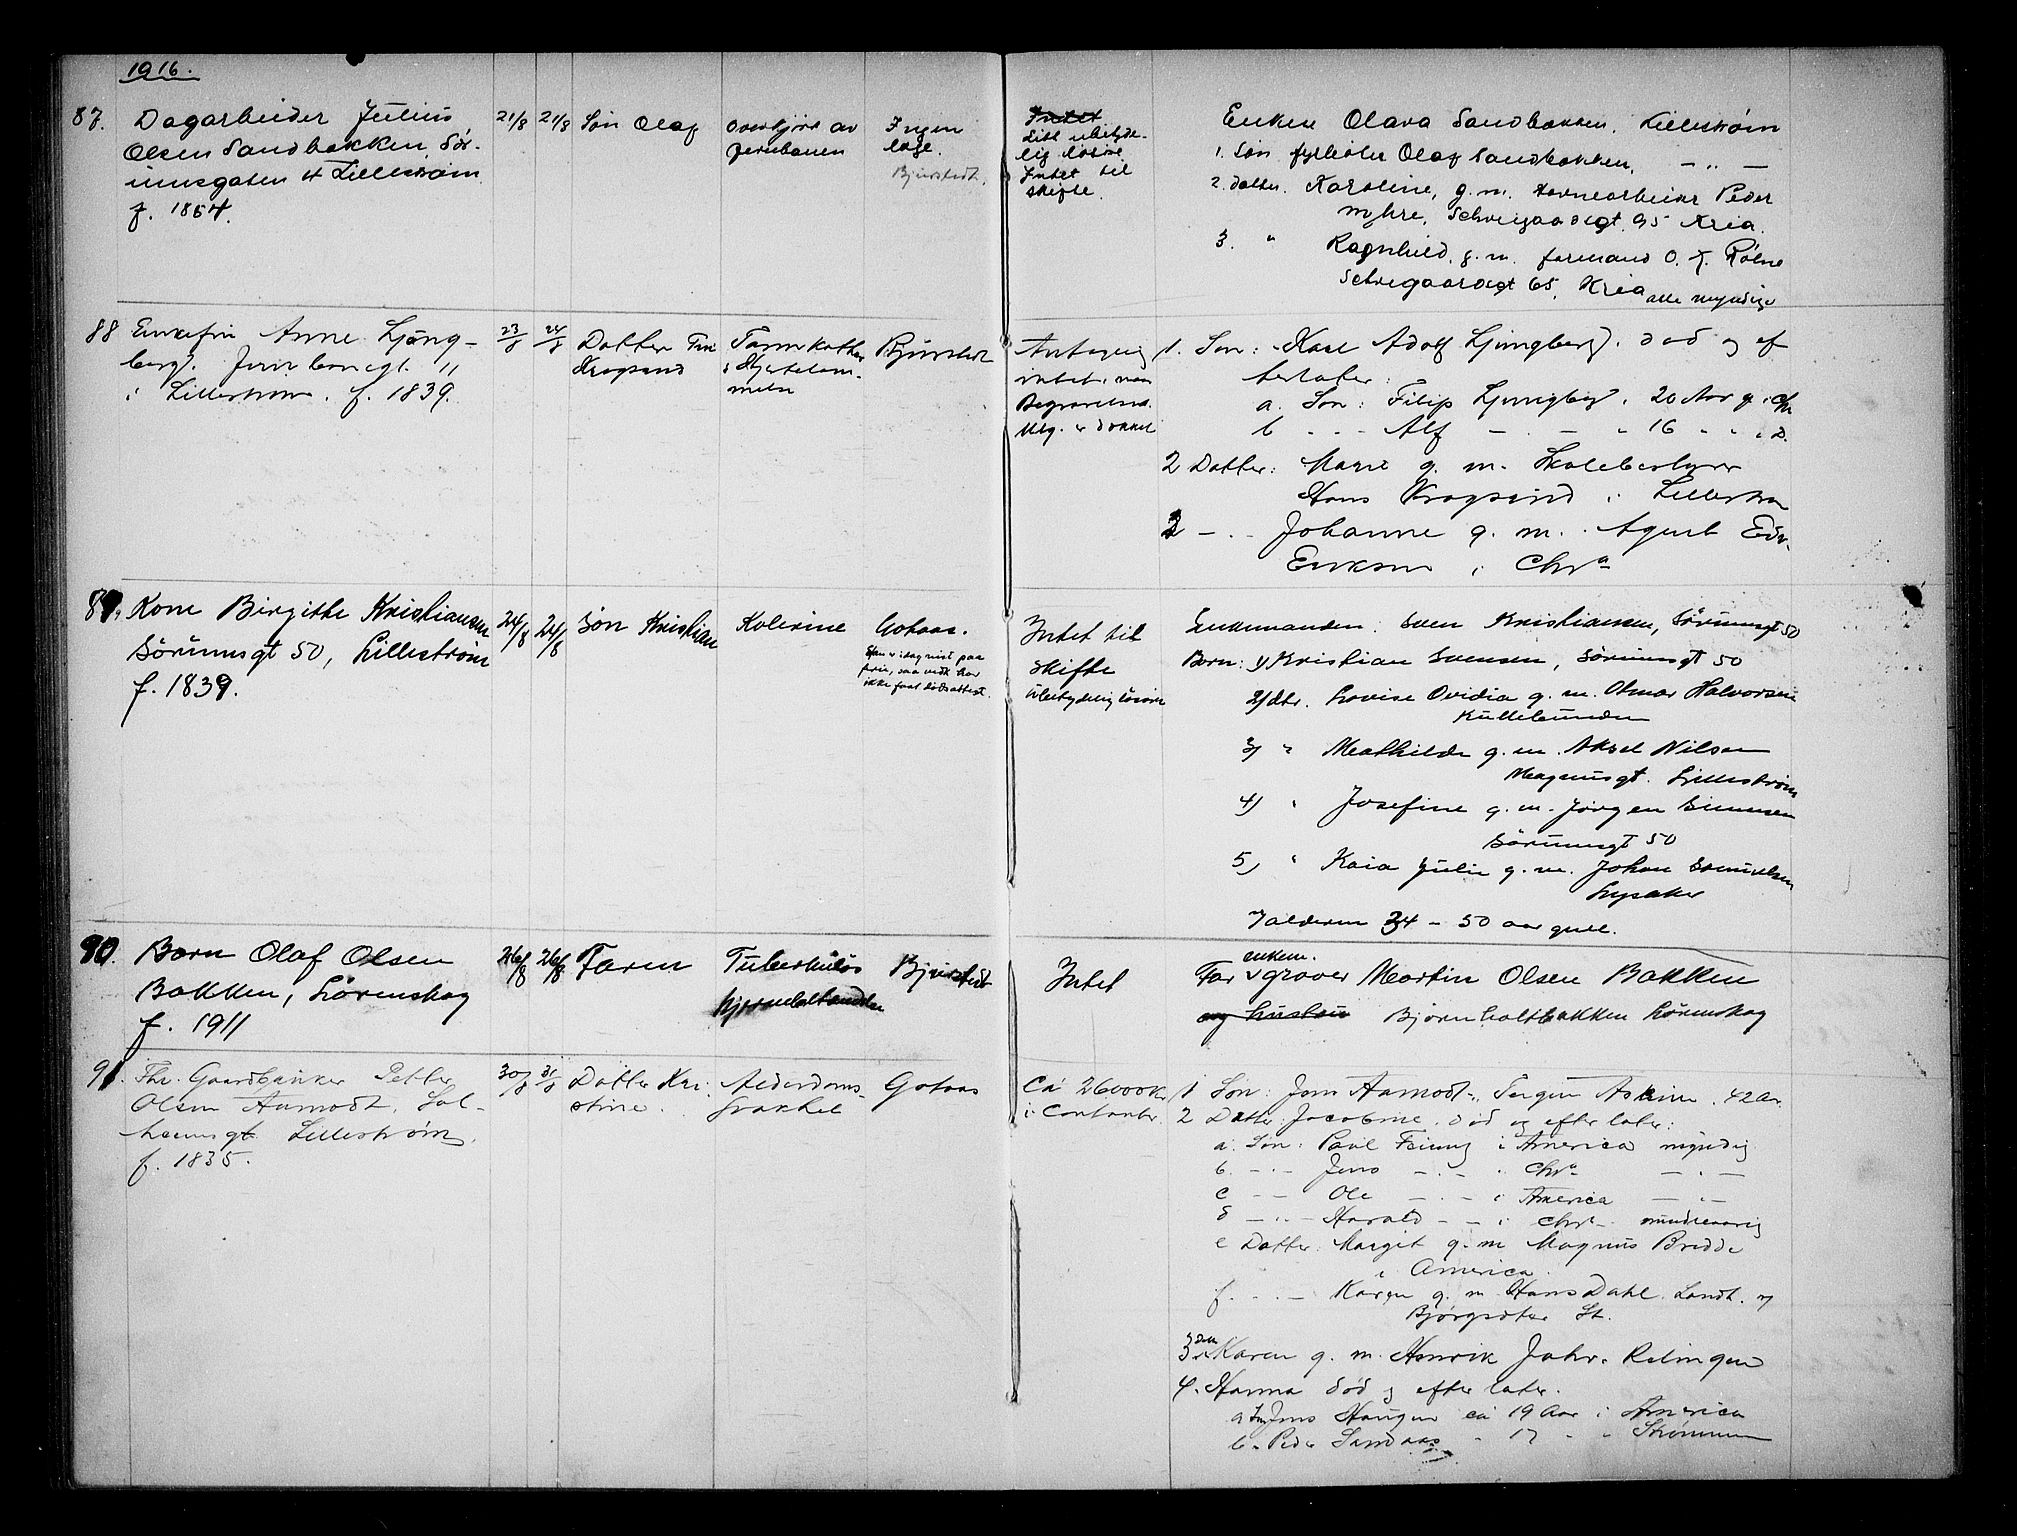 1916.
87. Dagarbeider Julius
Olsen Sandbakken, Sör-
umsgaten 4 Lillestrøm
f. 1864.
21/8 21/8 Søn Olaf
Overkjört av
Jernbanen
Ingen
læge.
Bjurstedt.
Intet
Litt ubetyde-
lig løsøre.
Intet til
skifte.
Enken Olava Sandbakken, Lillestrøm
1. Søn fyrbøter Olaf Sandbakken, — „ —
2. datter. Karoline, g. m. Peder
Myhre, Schweigaardsgt. 95 Kria.
3. " Ragnhild, g. m. formand O. J.
Schweigaardsgt 65, Kria alle myndige
88 Enkefru Anne Ljung-
berg. Jernbanegt. 11
i Lillestrøm. f. 1839.
23/8 24/8 Datter Fru
Krogsund
Tarmkatharr
& Hjertelam-
melse
Bjurstedt
Antagelig
intet. naar
Begravelsen.
Utg. er dækket
1. Søn: Karl Adolf Ljungberg. død og ef
terlater:
a. Søn: Filip Ljungberg. 20 Aar g. i Chr
b - - - Alf — . — „ 16 „ „ „ D.
2 Datter: Marie g. m. Skolebestyrer
Hans Krogsund i Lillestrøm
3 — . . Johanne g. m. Agent Edv.
Eriksen i Chra
89. Kone Birgithe Kristiansen
Sörumsgt 50, Lilleström
f. 1839.
24/8 24/8 Søn Kristian
Kolerine
Gotaas.
Han er idag reist paa
ferie, saa vedk har
ikke faat dödsattest.
Intet til
skifte
Ubetydelig løsøre
Enkemanden: Sven Kristiansen, Sörumsgt 50
Børn: 1/ Kristian Svensen, Sörumsgt 50
2/ dtr. Lovise Ovidia g. m. Otmar Halvorsen
3/ " Mathilde g. m. Aksel Nilsen
Magnusgt. Lilleström
4) " Josefine g. m. Jörgen Simensen
Sörumsgt 50
5) " Kaia Julie g. m. Johan Samuelsen
Lysaker
I alderen 34 – 50 aar gml.
90. Barn Olaf Olsen
Bakken, Lörenskog
f. 1911
26/8 26/8 Faren
Tuberkuløs
hjernebetændelse
Bjurstedt
Intet
enkem.
Far v graver Martin Olsen Bakken
og hustru Bjørnholtbakken Lörenskog
91. Fhv. Gaardbruker Petter
Olsen Aamodt, Sol-
heimsgt. Lillestrøm.
f. 1835.
30/8 31/8 Datter Kri-
stine.
Alderdoms-
svakhet
Gotaas
Ca 26000 Kr
i Contanter
1 Søn: Jens Aamodt, Askim. 42 Ar
2 Datter Jacobine. død og efterlater:
a. Søn: Paul i America myndig
b. - - - Jens — . — i Chra — . —
c - - Ole — . — i America — „ —
d — „ — Harald — — i Chra — mindreaarig
e Datter: Margit g. m Magnus Bredde
i America.
f. - . — Karen g. m Hans Dahl. Landh. v/
Bjørgsæter St.
3 Datt. Karen g. m. Henrik Jahr. Relingen
4. Hanna død og efterlater.
a Søn Jens Haugen ca 19 Aar i America
b. " Peder " 17 „ „ Strømmen